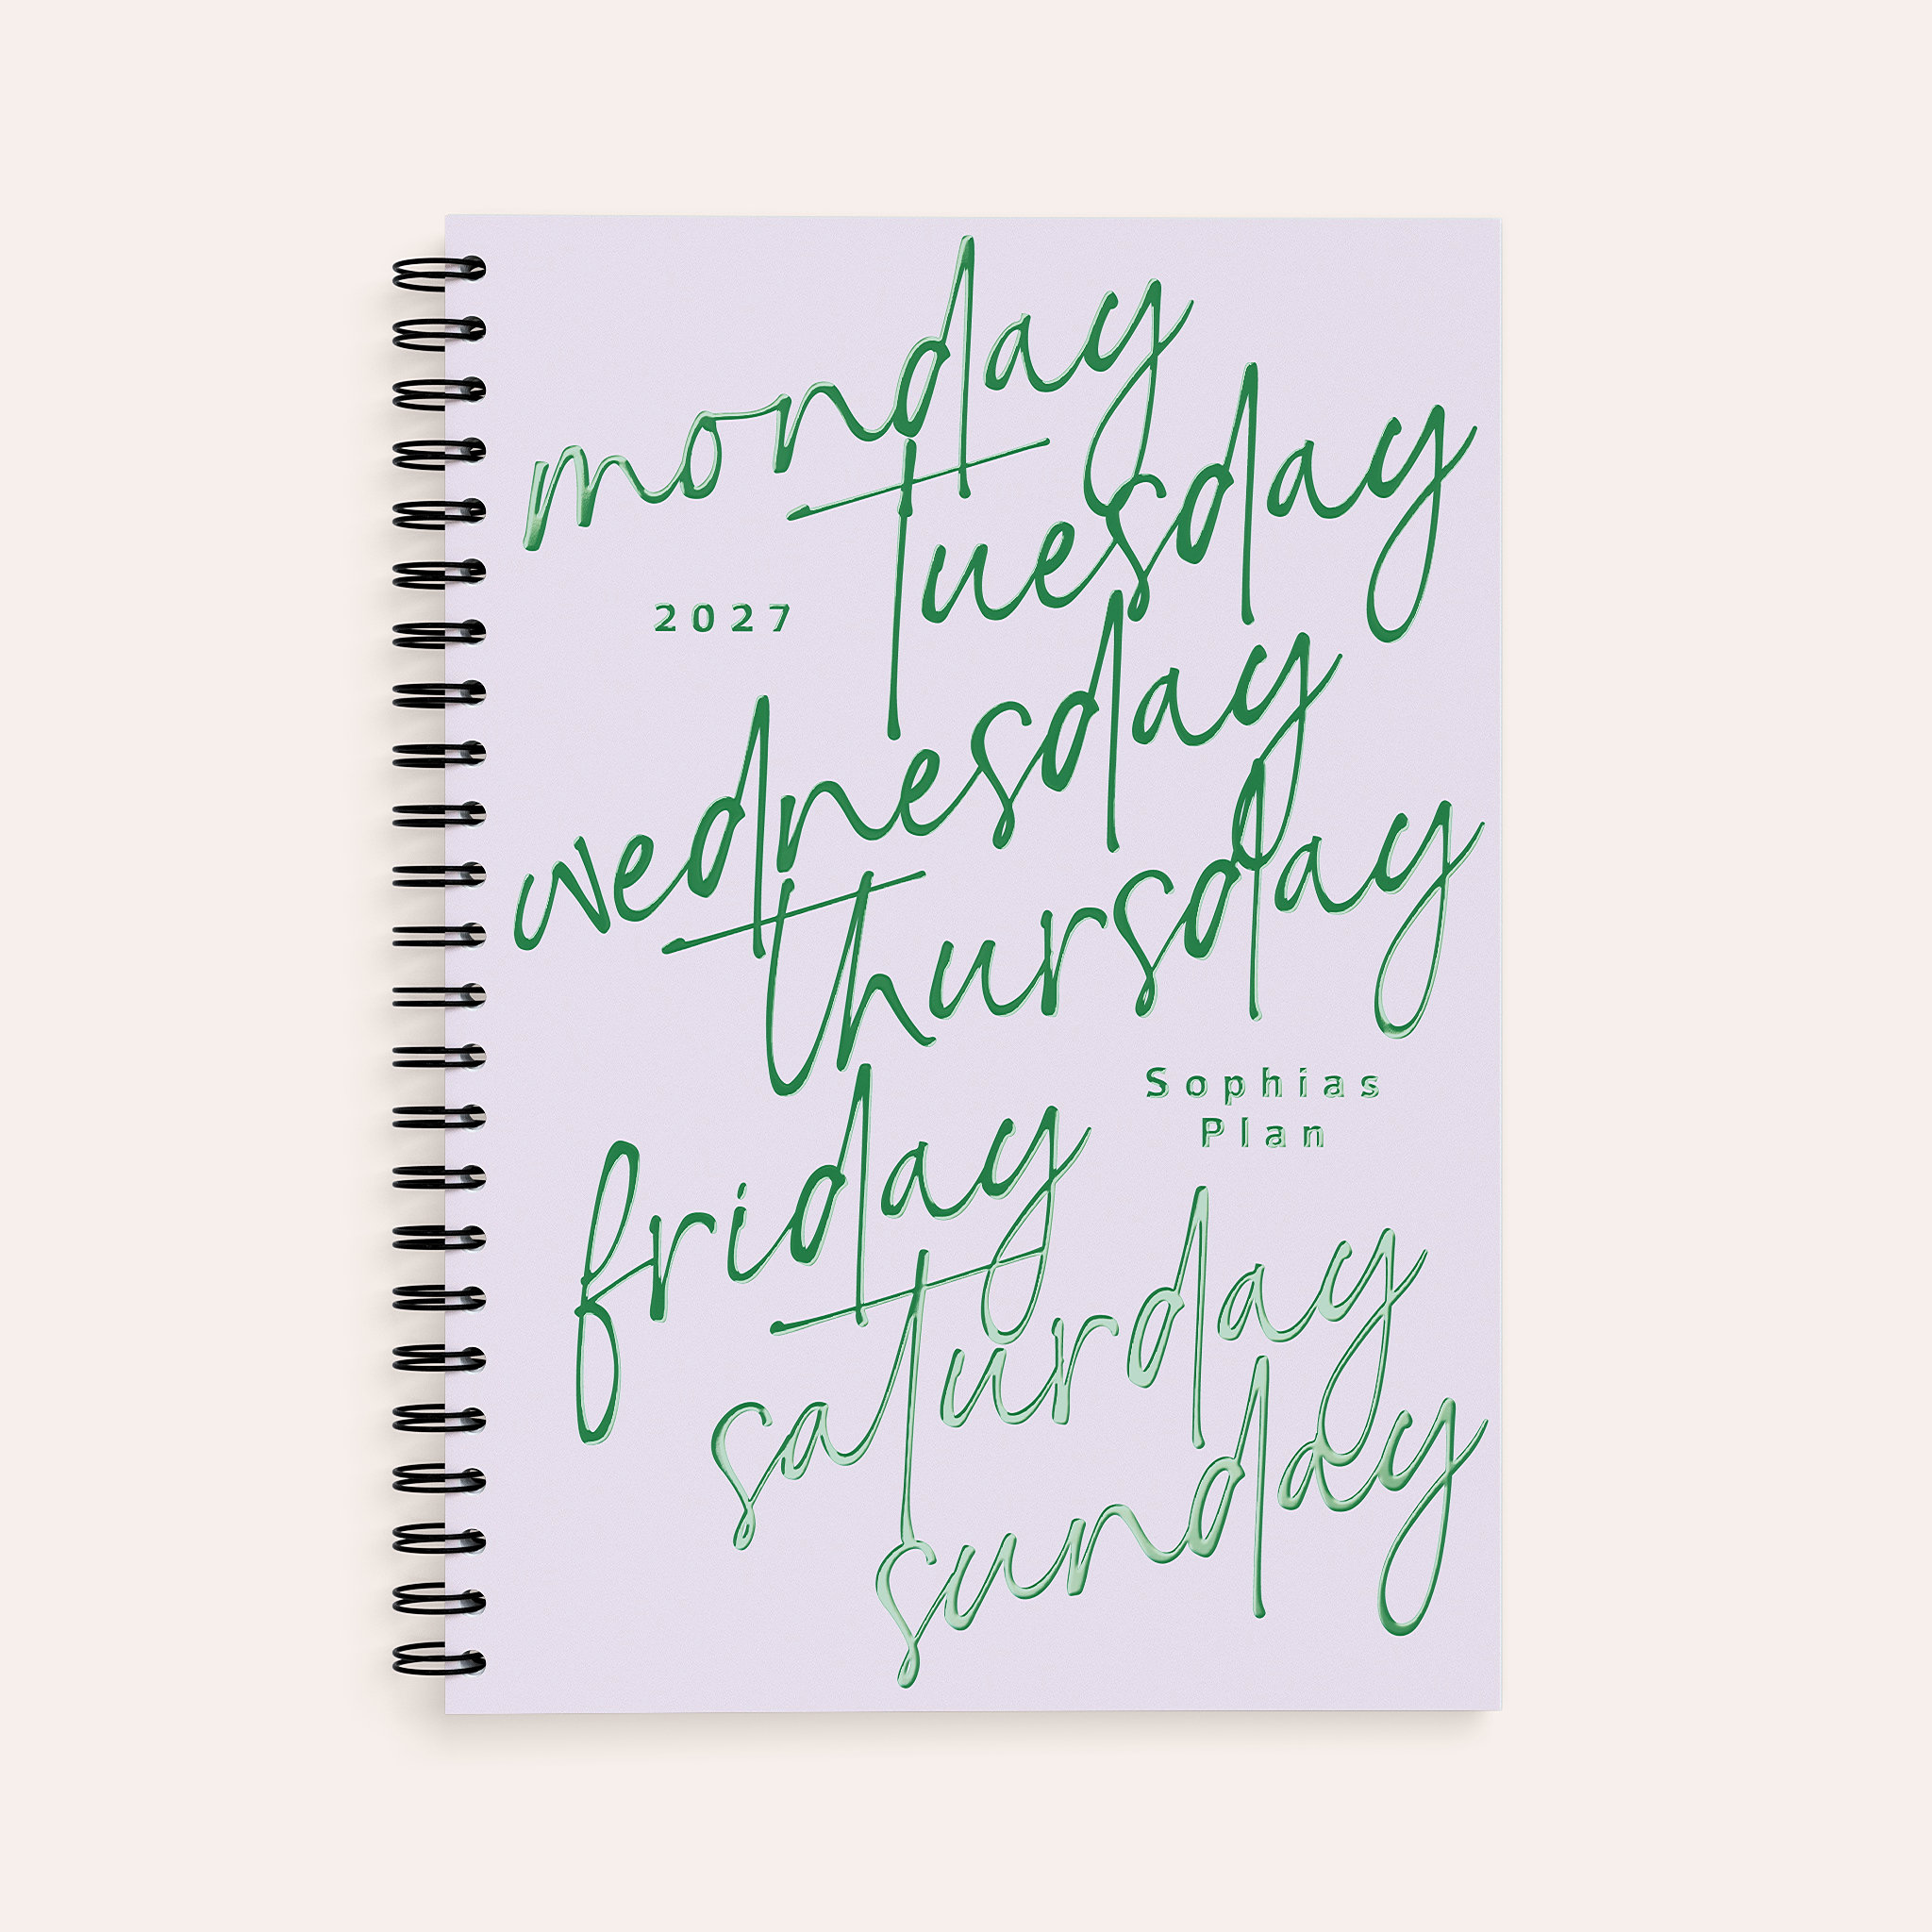 monday
tuesday
2027
wednesday
thursday
Sophias
Plan
friday
saturday
sunday